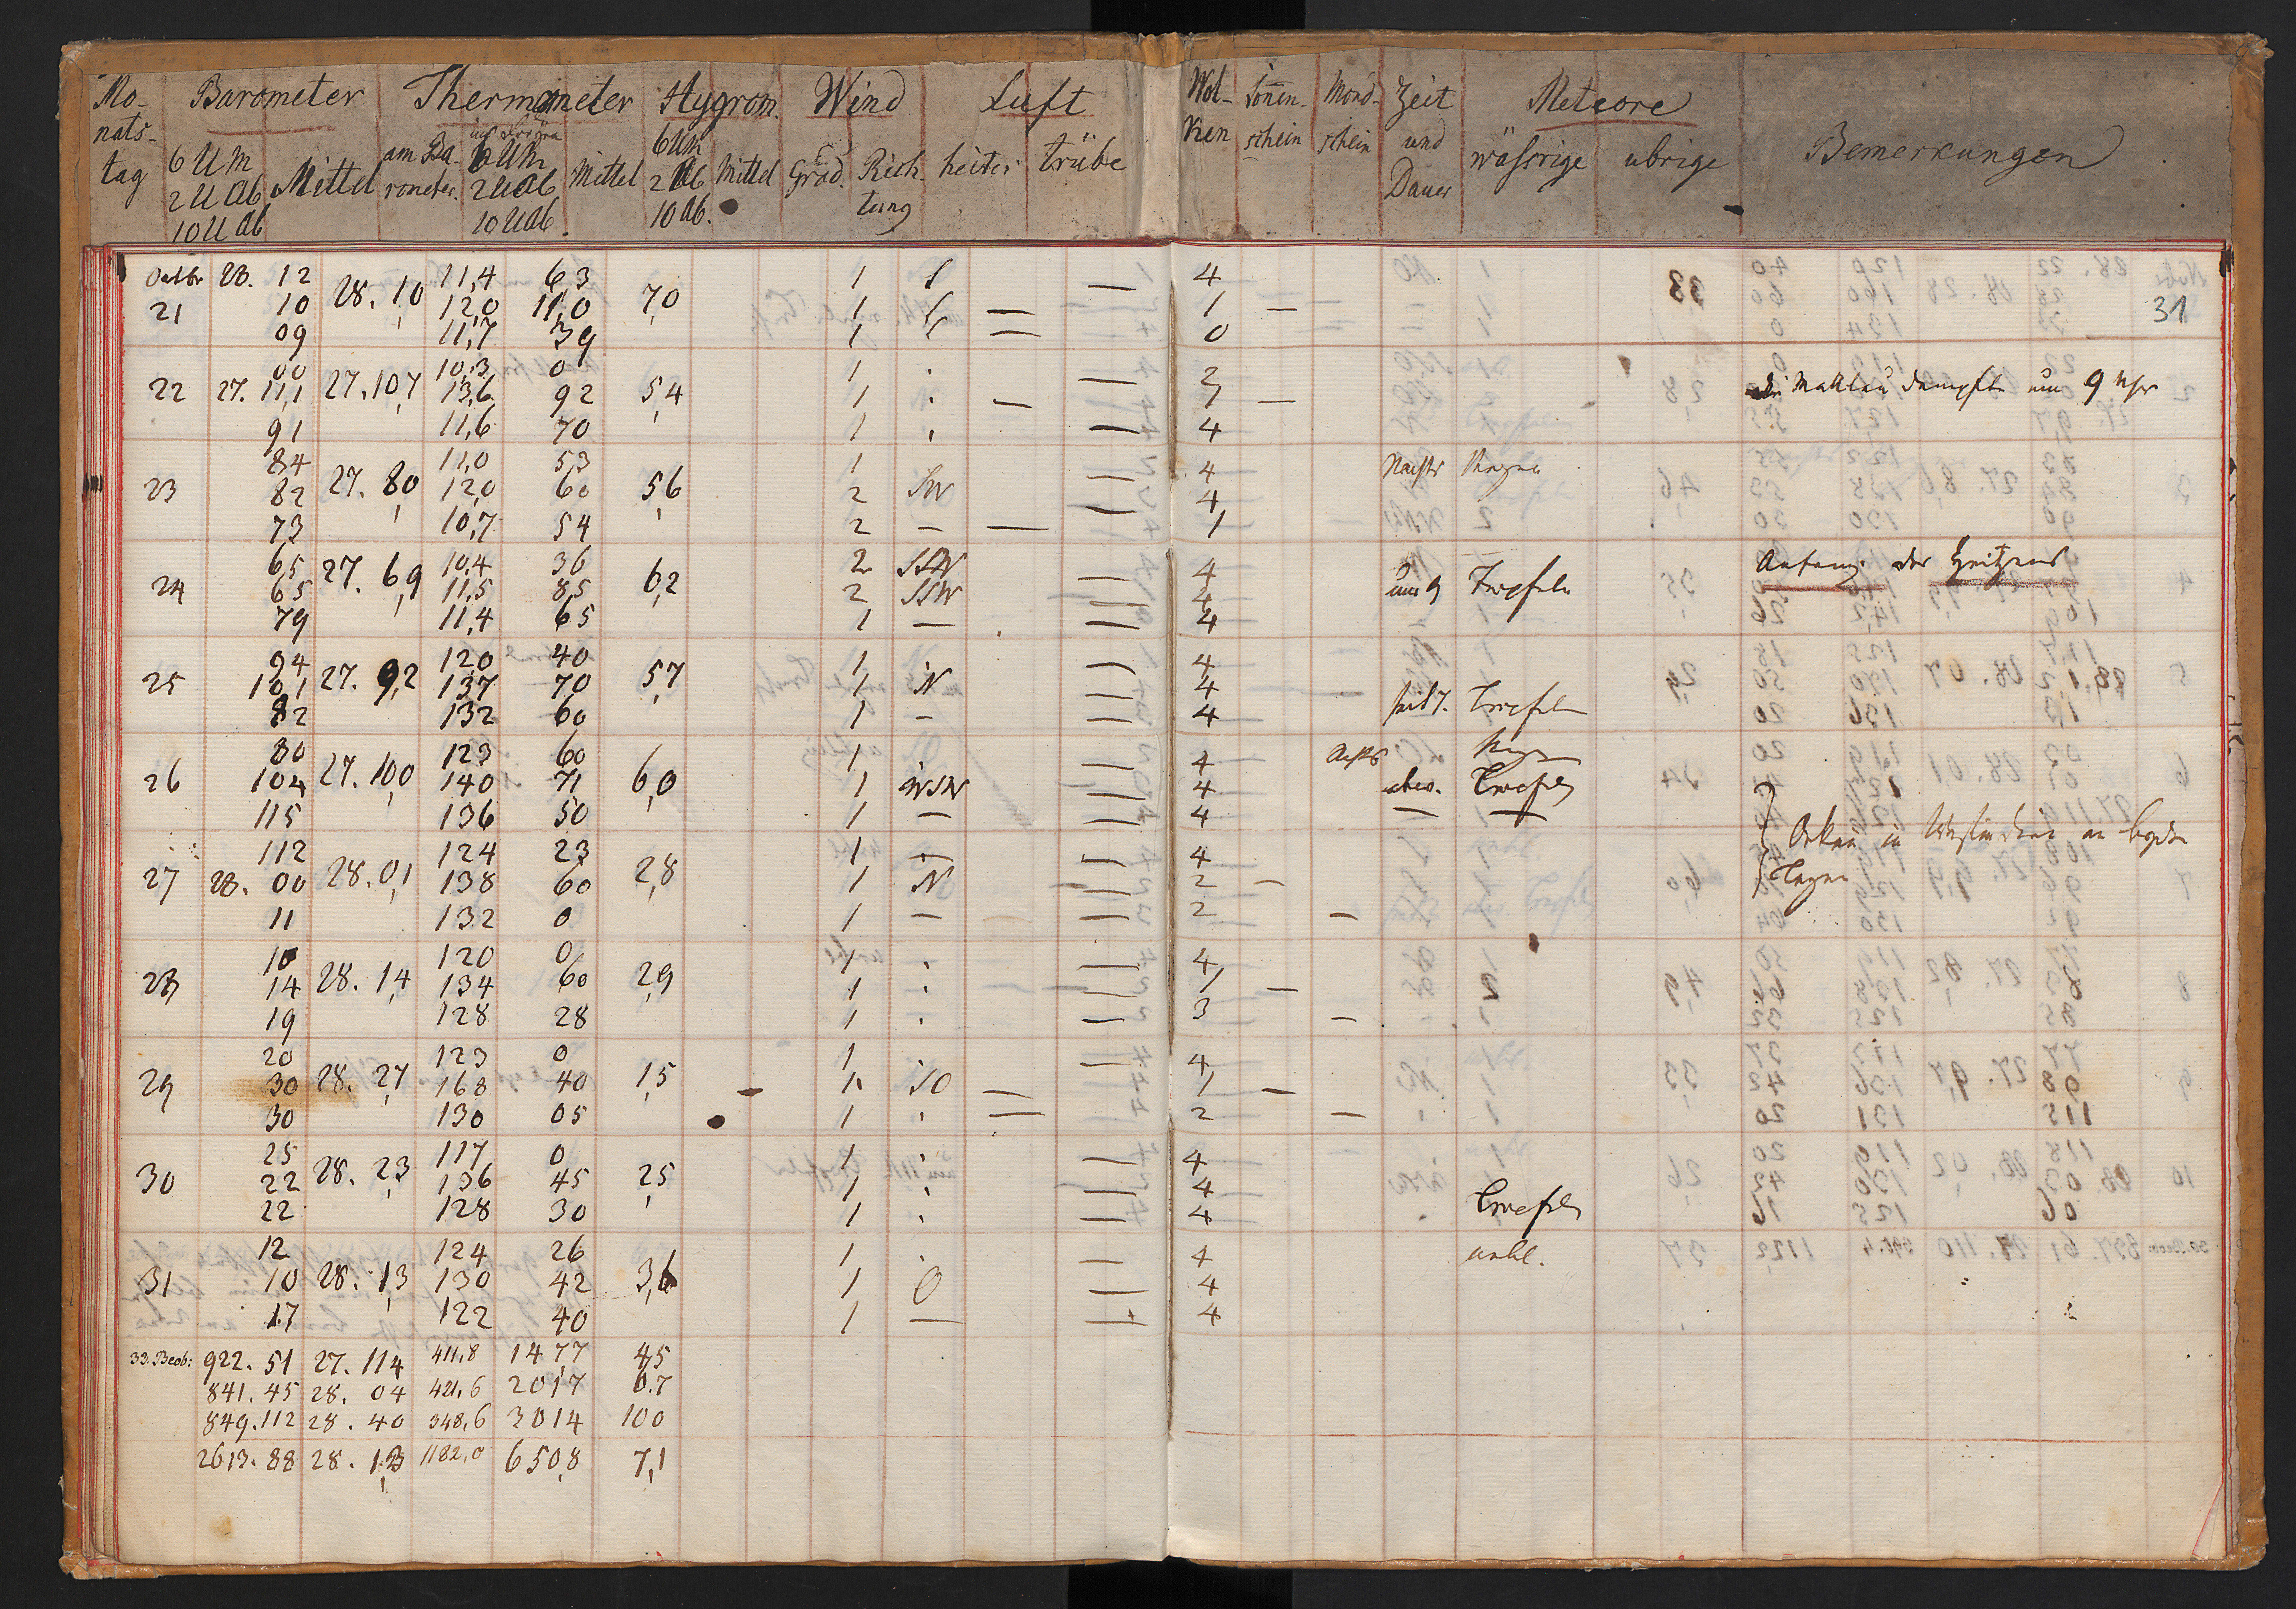 Mo- Barometer Thermometer Hygrom. Wind Luft Wol- Sonnen- Mond- Zeit Meteore
nats- 6 UM am Ba- 6 UM 6 UM ken schein schein und wässrige übrige Bemerkungen
tag 2 U Ab Mittel rometer. 2 U Ab Mittel 2 Ab Mittel Grad. Rich- heiter trübe Dauer
10 U Ab 10 U Ab. 10 Ab. tung
31
Octbr 28. 12 28. 10 11,4 6,3 7,0 1 S — 4
21 10 12,0 11,0 1 — 1 —
09 11,7 39 1 — 0
00 10,3 0 1 — 2
22 27. 11,1 27. 10,7 13,6 92 5,4 1 — 1 — Mahlau dampfte um 9 Uhr
91 11,6 70 1 — 4
84 11,0 53 1 — 4 Nachts Regen
23 82 27. 80 12,0 60 5,6 2 SW — 4
73 10,7 54 2 — — 1
65 27. 6,9 10,4 36 2 SSW — 4 Anfang des Heitzens
24 65 11,5 8,5 6,2 2 SSW — 4 um 9 Tropfeln
79 11,4 65 1 — — 4
94 120 40 1 — 4
25 101 27. 9,2 137 70 5,7 1 N — 4
82 132 60 1 — — 4 Tropfeln
80 123 60 1 — 4
26 104 27. 100 140 71 6,0 1 WSW — 4 Tropfeln
115 136 50 1 — — 4 — —
112 124 23 1 — — 4 Orkan in Westindien an beyden
27 28. 00 28. 0,1 138 60 2,8 1 N — 2 — Tagen
11 132 0 1 — — 2 —
10 120 0 1 — 4
28 14 28. 1,4 134 60 2,9 1 — 1 —
19 128 28 1 — 3 —
20 123 0 1 — 4
29 30 28. 27 168 40 1,5 1 SO — 1 —
30 130 05 1 — 2 —
25 117 0 1 — 4
30 22 28. 23 136 45 2,5 1 — 4
22 128 30 1 — 4 Tropfeln
12 124 26 1 — 4
31 10 28. 13 130 42 3,6 1 O — 4
17 122 40 1 — — 4
33 Beob: 922. 51 27. 114 411,8 147,7 45
841. 45 28. 04 421,6 2017 0.7
849. 112 28. 40 348,6 3014 100
2613. 88 28. 13 1182,0 650,8 7,1